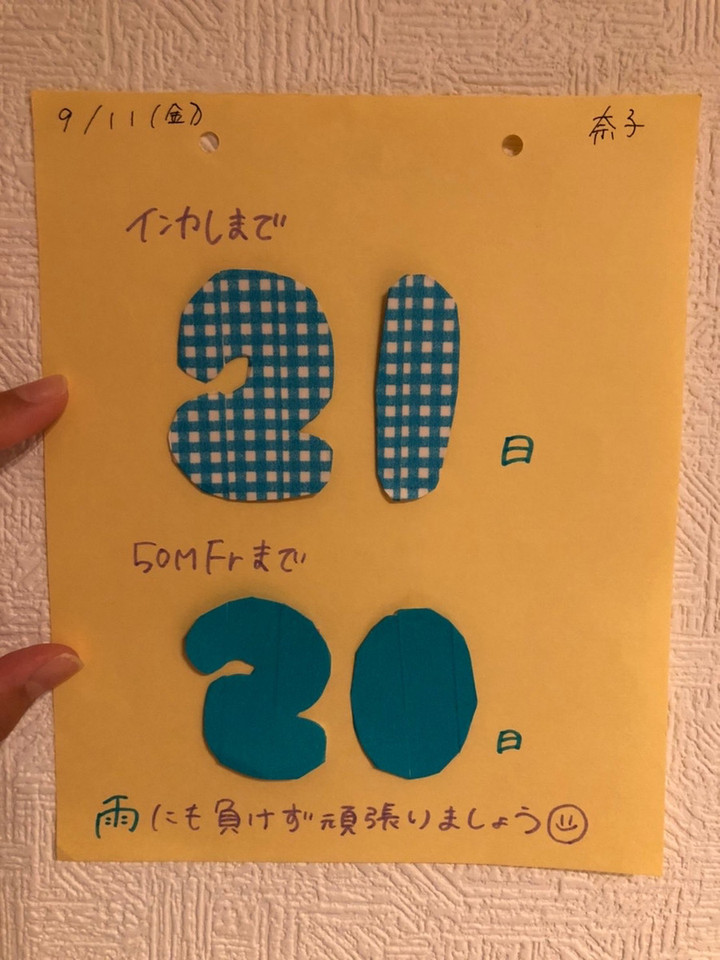 9/11(金) 奈子
インカレまで
21日
50mFrまで
20日
雨にも負けず頑張りましょう